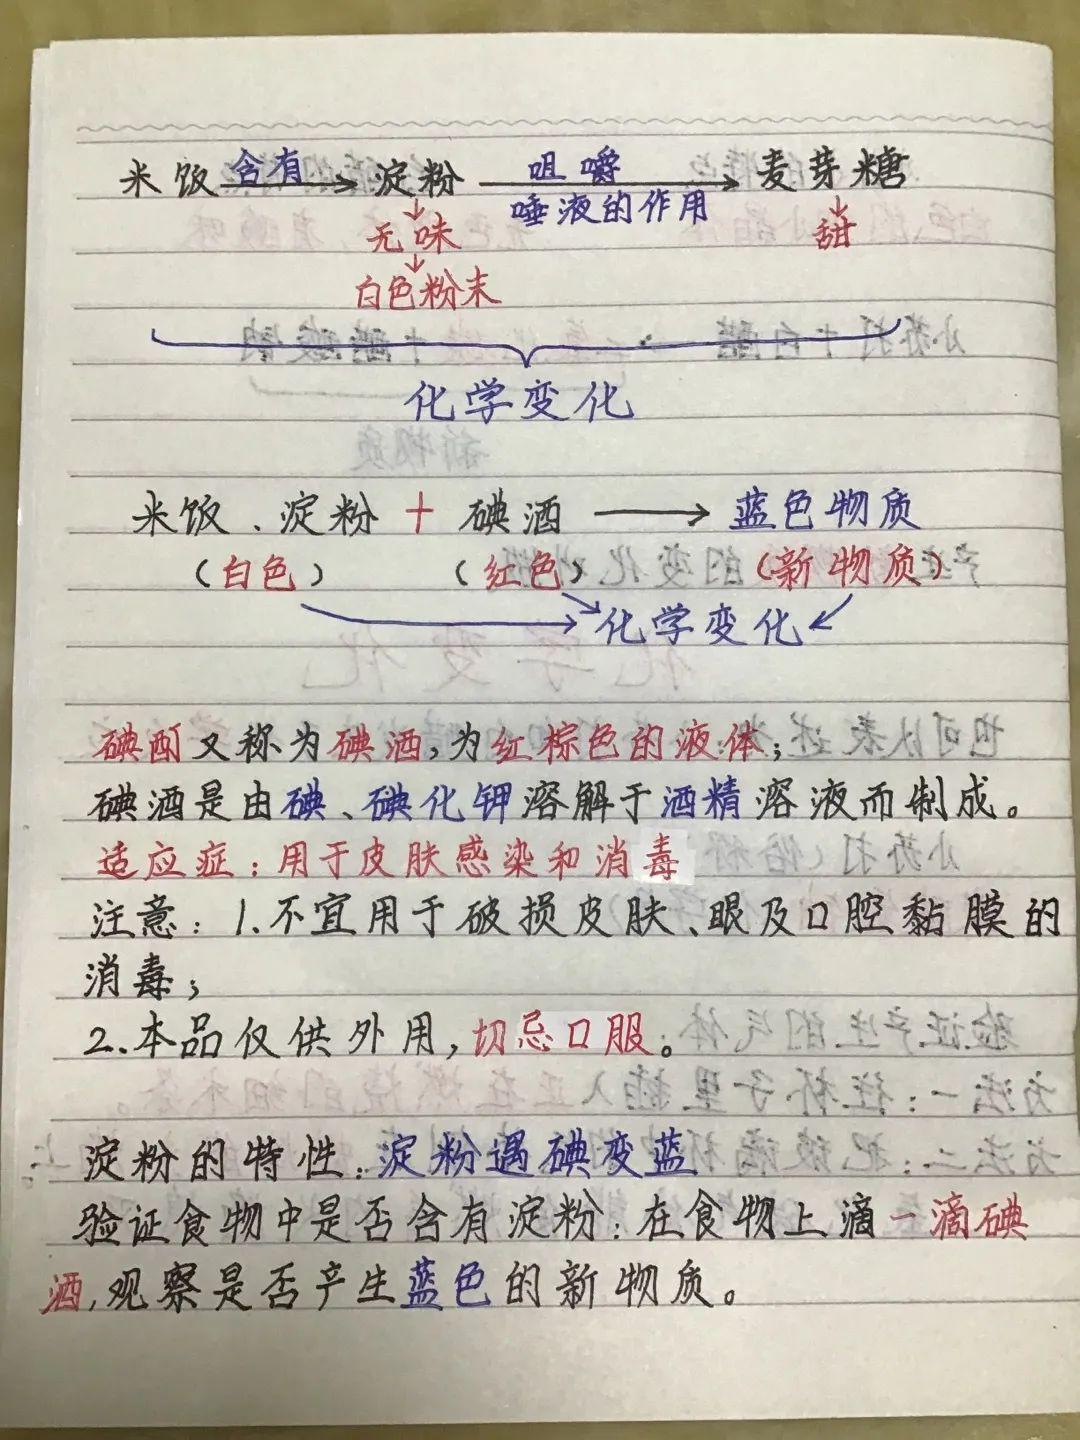 米饭 含有→ 淀粉 咀嚼→ 麦芽糖
唾液的作用
↓ ↓
无味 甜
↓
白色粉末
化学变化
米饭、淀粉 + 碘酒 → 蓝色物质
(白色) (红色) (新物质)
化学变化
碘酊又称为碘酒,为红棕色的液体;
碘酒是由碘、碘化钾溶解于酒精溶液而制成。
适应症:用于皮肤感染和消毒
注意:1.不宜用于破损皮肤、眼及口腔黏膜的
消毒;
2.本品仅供外用,切忌口服。
淀粉的特性:淀粉遇碘变蓝
验证食物中是否含有淀粉:在食物上滴一滴碘
酒,观察是否产生蓝色的新物质。